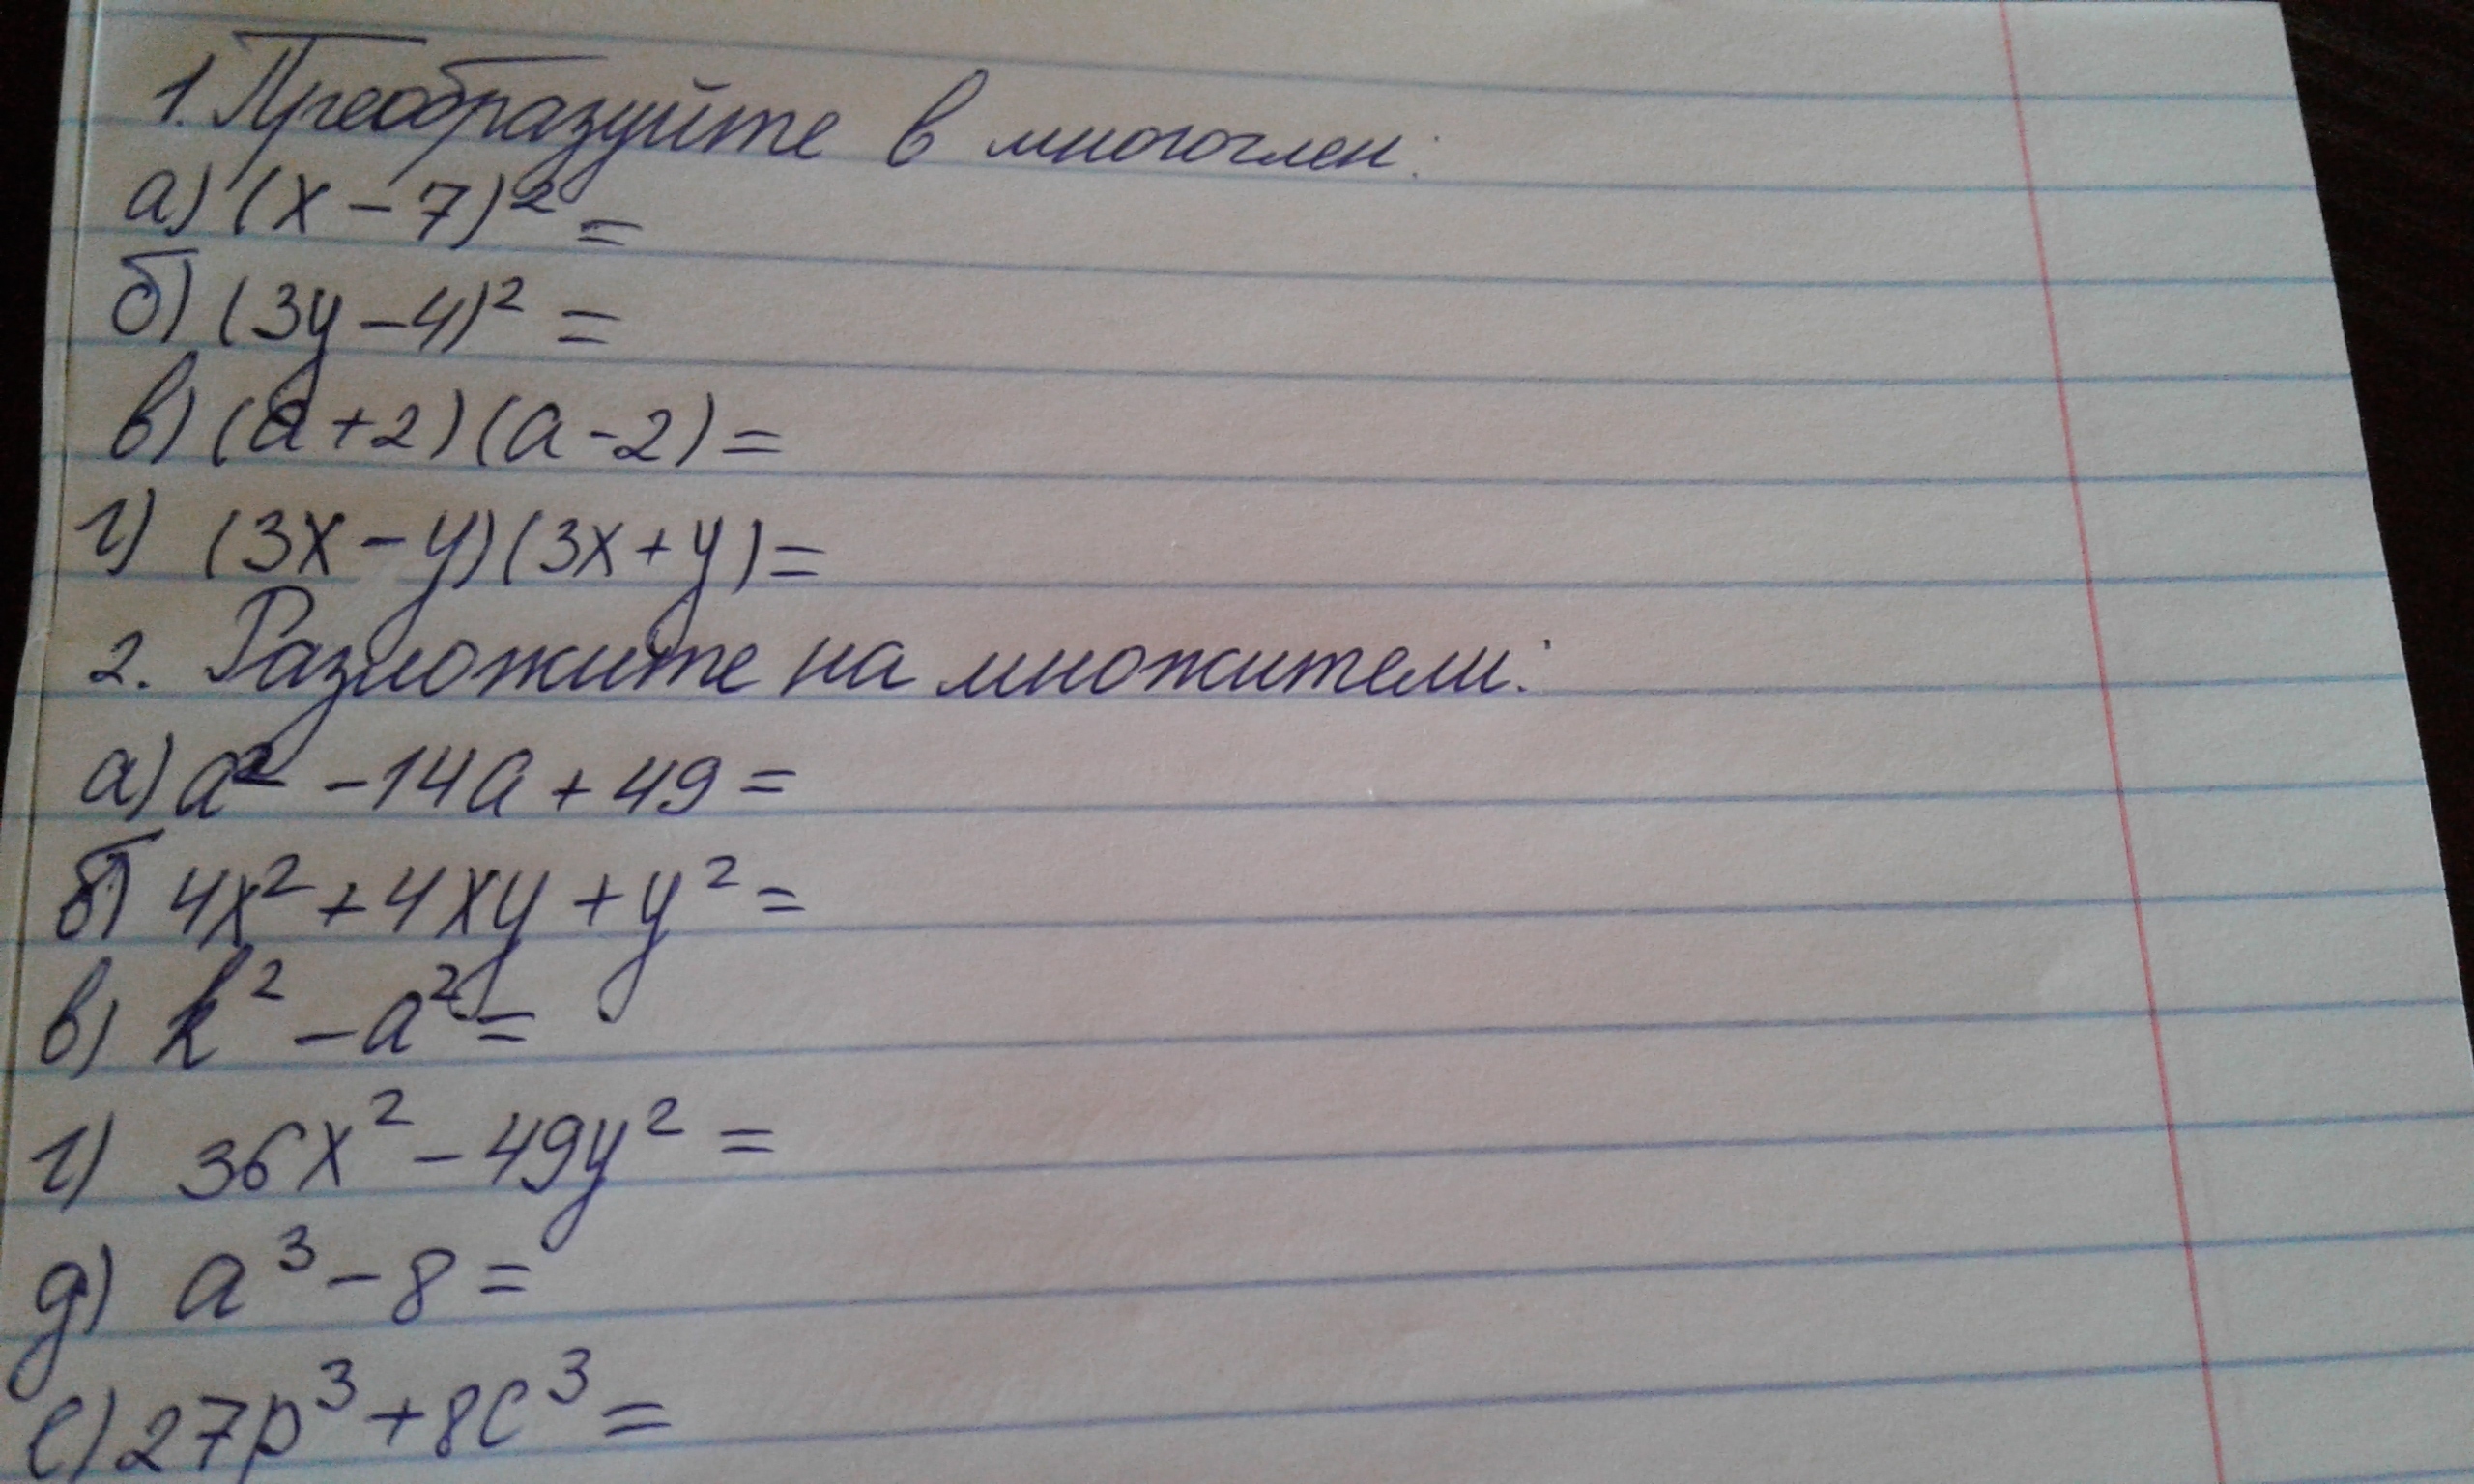 1. Преобразуйте в многочлен:
а) (x - 7)² =
б) (3y - 4)² =
в) (a + 2)(a - 2) =
г) (3x - y)(3x + y) =
2. Разложите на множители:
а) a² - 14a + 49 =
б) 4x² + 4xy + y² =
в) k² - a² =
г) 36x² - 49y² =
д) a³ - 8 =
е) 27p³ + 8c³ =